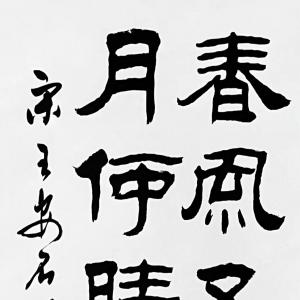 春風又
月何時
宋王安石